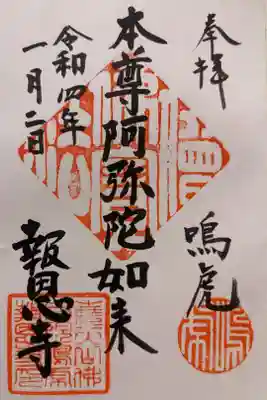 奉拝
鳴虎
本尊阿弥陀如来
令和四年
一月二日
報恩寺